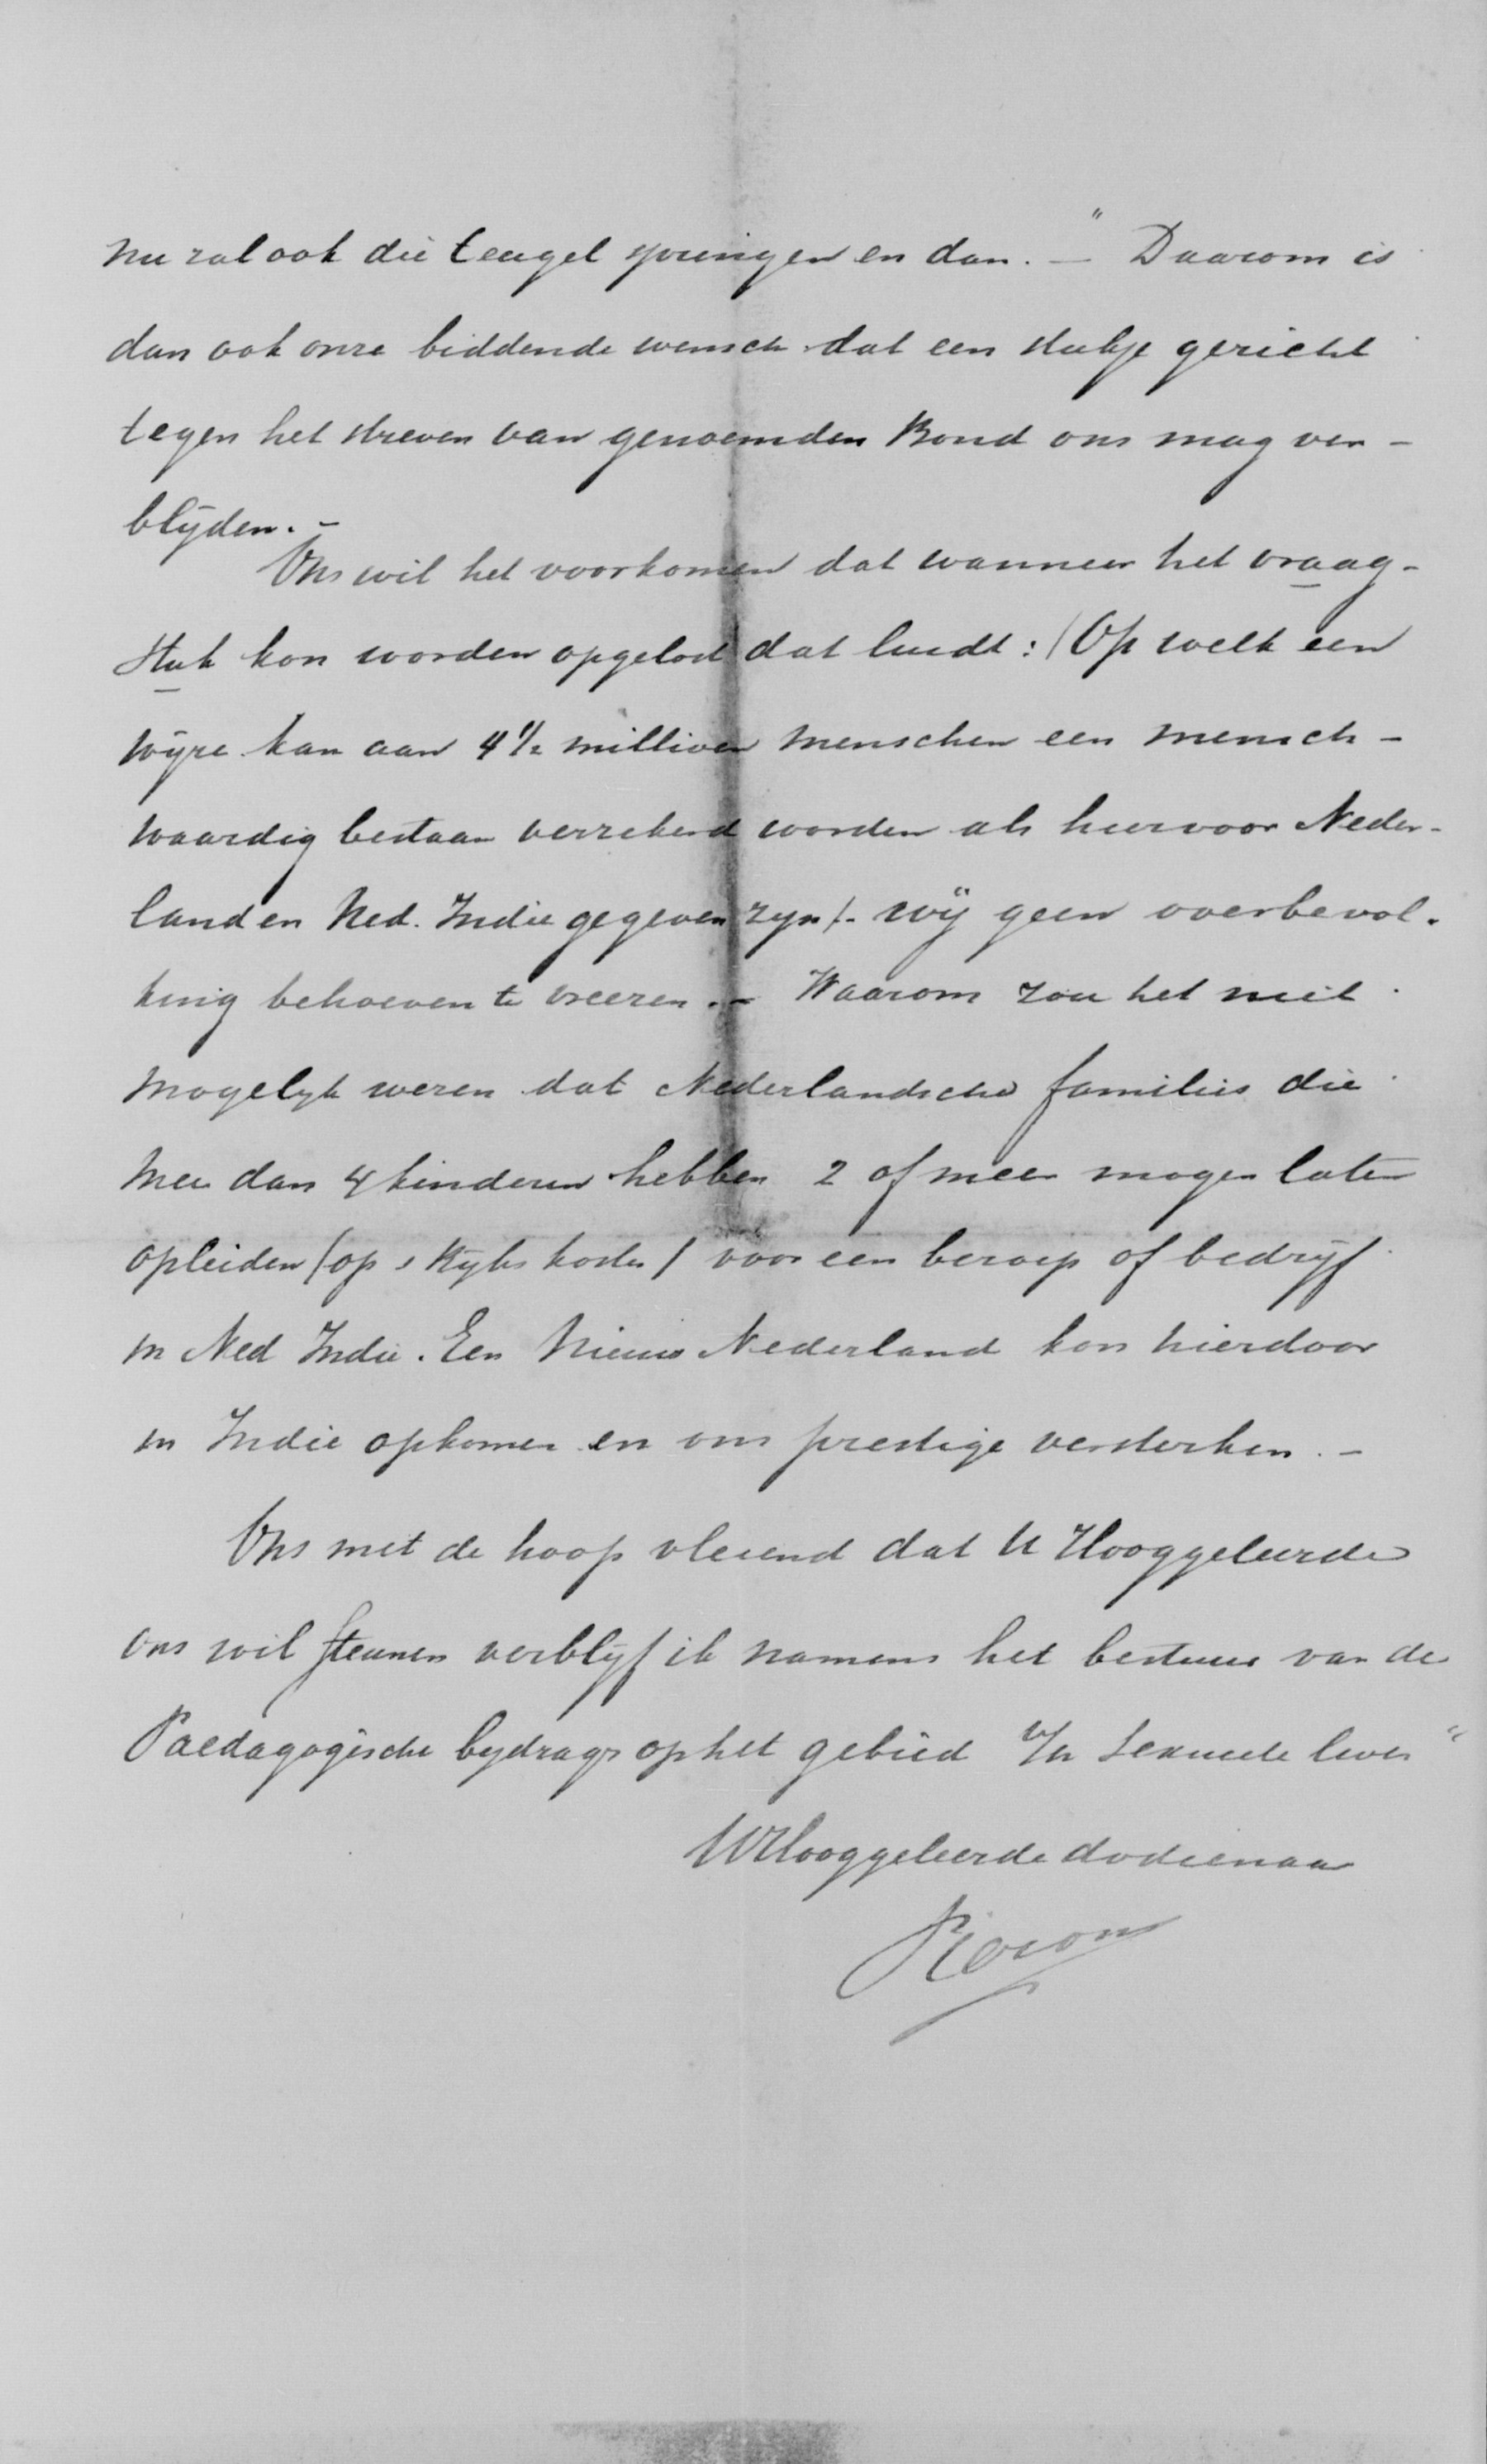 nu zal ook die teugel springen en dan. —" Daarom is
dan ook onze biddende wensch dat een stukje gericht
tegen het streven van genoemden Bond ons mag ver-
blijden. -
Ons wil het voorkomen dat wanneer het vraag-
stuk kon worden opgelost dat luidt: (Op welk een
wijze kan aan 4½ millioen menschen een mensch-
waardig bestaan verzekerd worden als hiervoor Neder-
land en Ned. Indie gegeven zyn). wij geen overbevol-
king behoeven te vreezen. - Waarom zou het niet
mogelyk wezen dat Nederlandsche families die
meer dan 4 kinderen hebben 2 of meer mogen laten
opleiden (op s Ryks kosten) voor een beroep of bedrijf
in Ned Indie. Een Nieuw Nederland kon hierdoor
in Indie opkomen en ons prestige versterken. -
Ons met de hoop vleiend dat U Hooggeleerde
ons wil steunen verblijf ik namens het bestuur van de
Paedagogische bydrage op het gebied v/h sexueele leven"
UHooggeleerde dvdienaar